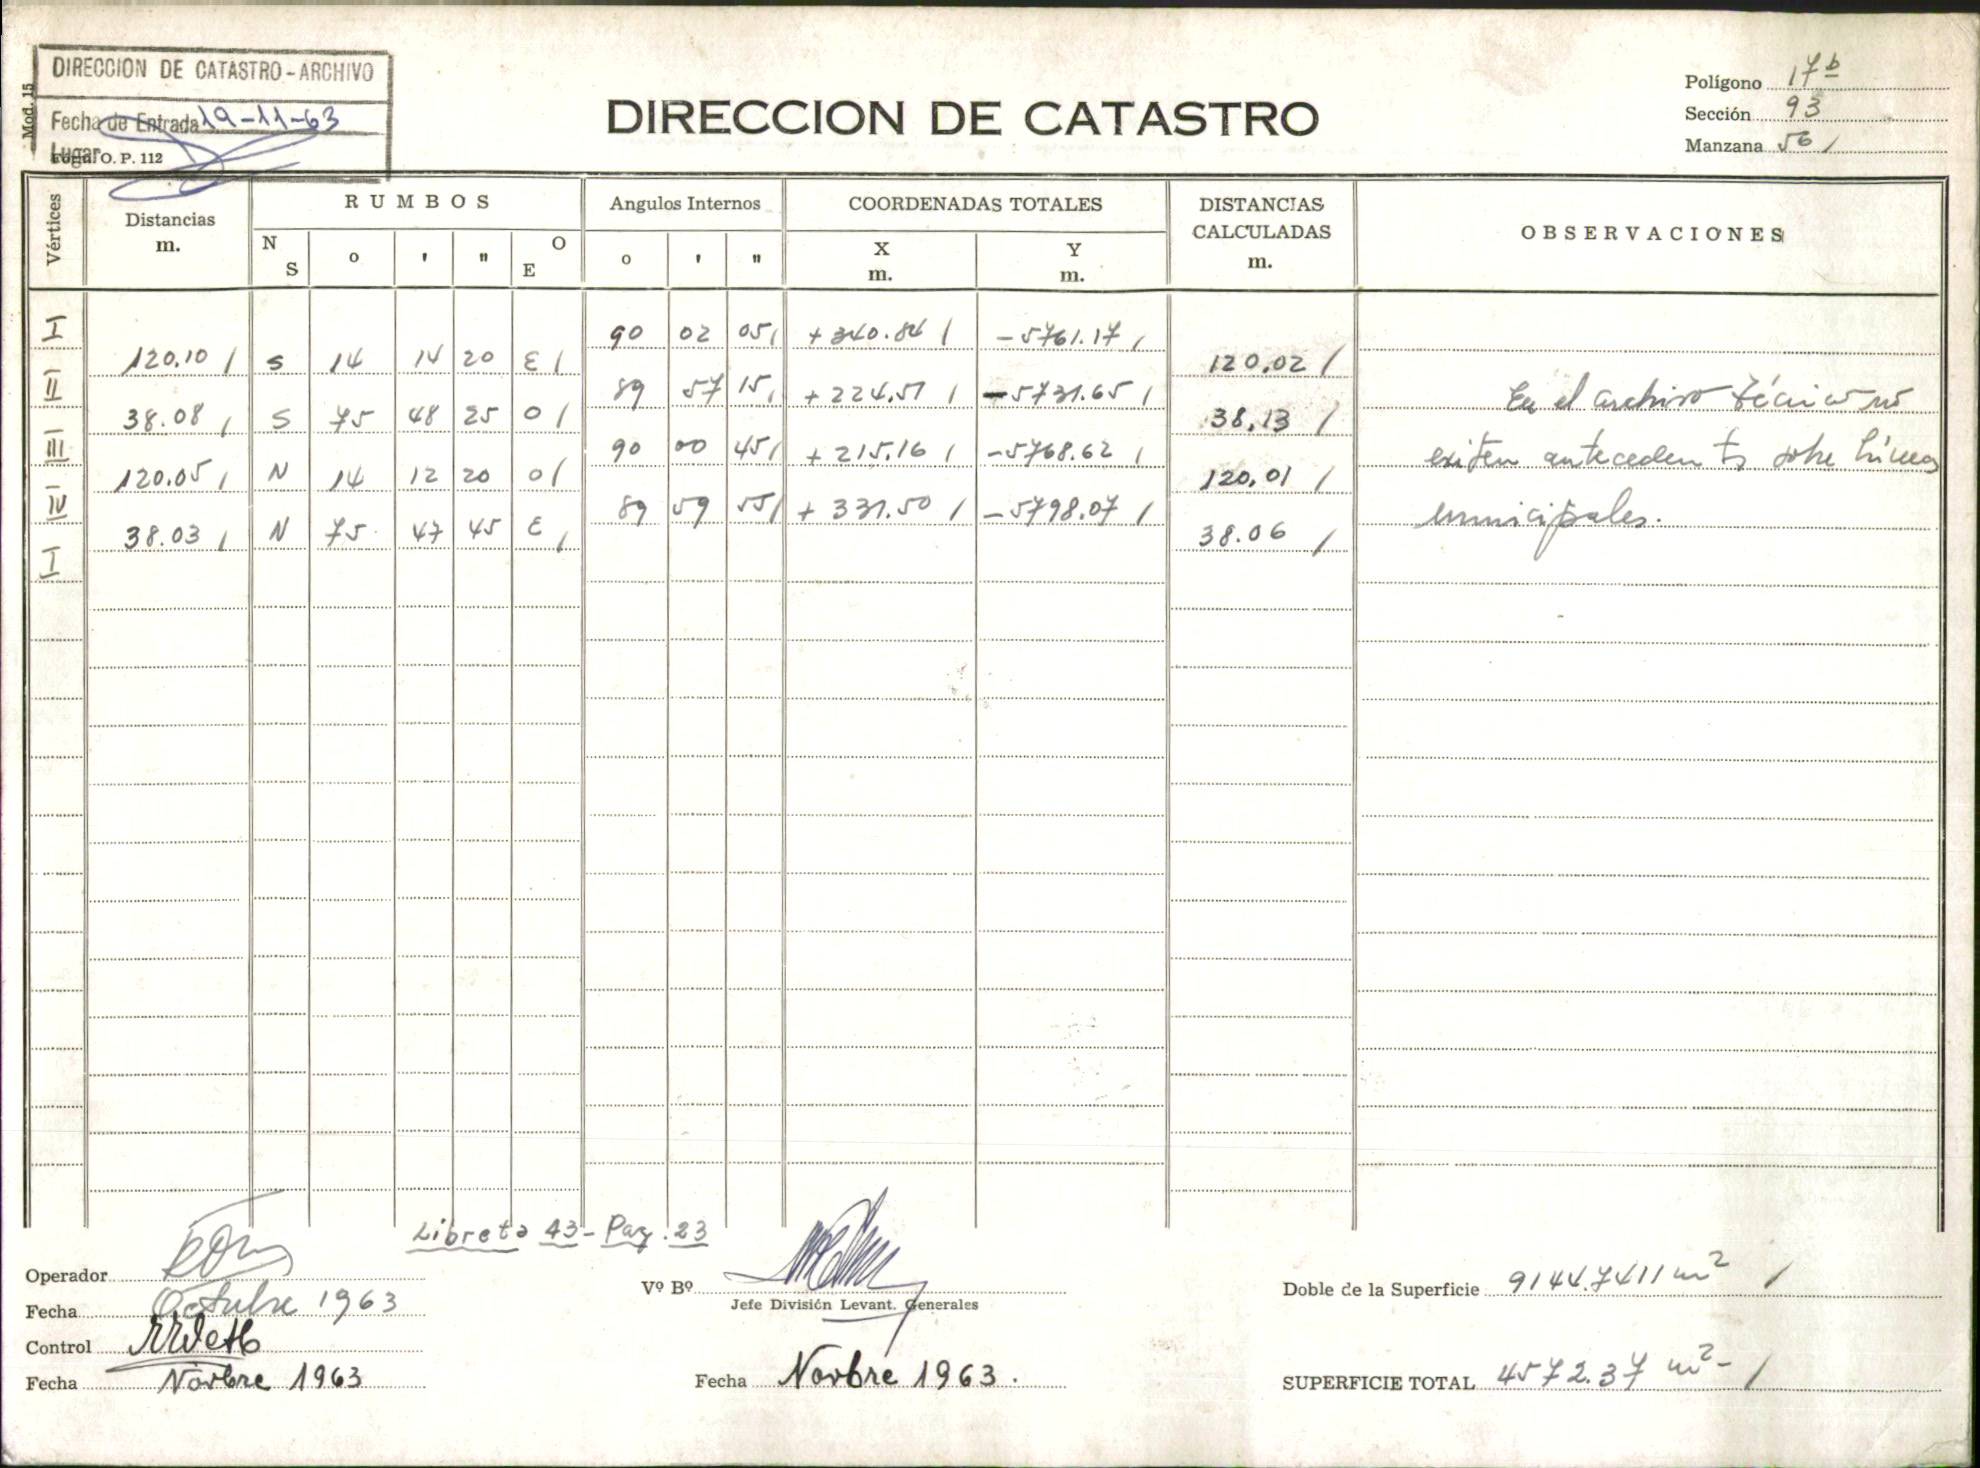 DIRECCION DE CATASTRO-ARCHIVO
Fecha de Entrada 19-11-63
Lugar
O. P. 112
Mod. 15
DIRECCION DE CATASTRO
Polígono 17b
Sección 93
Manzana 56
Vértices
Distancias
m.
RUMBOS
N S o ' " O E
Angulos Internos
o ' "
COORDENADAS TOTALES
X
m.
Y
m.
DISTANCIAS
CALCULADAS
m.
OBSERVACIONES
I 90 02 05 +340.84 -5761.17
120.10 S 14 14 20 E 120.02
II 89 57 15 +224.51 -5731.65
38.08 S 75 48 25 O 38.13
III 90 00 45 +215.16 -5768.62
120.05 N 14 12 20 O 120.01
IV 89 59 55 +331.50 -5798.07
38.03 N 75 47 45 E 38.06
I
En el archivo técnico no
existen antecedentes sobre líneas
municipales.
Libreta 43- Pag. 23
Operador
Fecha Octubre 1963
Control
Fecha Novbre 1963
Vº Bº
Jefe División Levant. Generales
Fecha Novbre 1963.
Doble de la Superficie 9144.7411 m2
SUPERFICIE TOTAL 4572.37 m2-